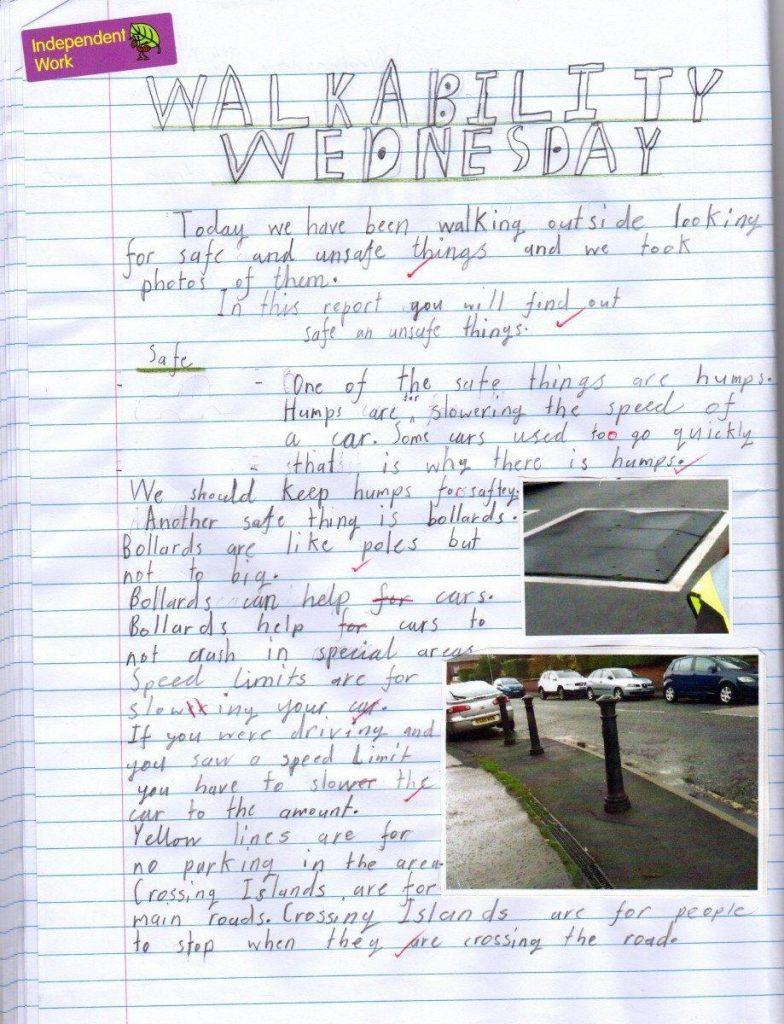 Independent
Work
WALKABILITY
WEDNESDAY
Today we have been walking outside looking
for safe and unsafe things and we took
photos of them.
In this report you will find out
safe an unsafe things.
Safe
- One of the safe things are humps.
Humps are for slowering the speed of
a car. Some cars used too go quickly
that is why there is humps.
We should keep humps for saftey.
Another safe thing is bollards.
Bollards are like poles but
not to big.
Bollards can help for cars.
Bollards help for cars to
not crash in special areas
Speed limits are for
slowing your car.
If you were driving and
you saw a speed limit
you have to slower the
car to the amount.
Yellow lines are for
no parking in the area.
Crossing Islands are for
main roads. Crossing Islands are for people
to stop when they are crossing the road.